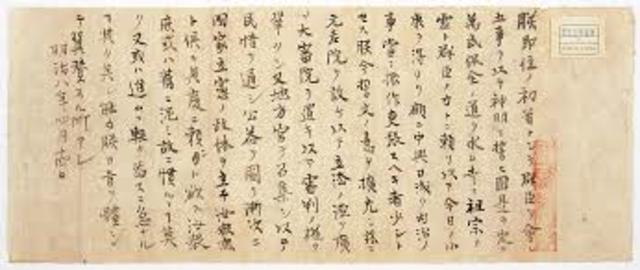 朕即位ノ初首トシテ群臣ヲ会
五事ヲ以テ神明ニ誓ヒ國是ヲ定
萬民保全ノ道ヲ求ム幸ニ祖宗ノ
霊ト群臣ノ力トニ頼リ以テ今日ノ小
康ヲ得タリ顧ニ中興日浅ク内治ノ
事當ニ振作更張スヘキ者少シト
セス朕今誓文ノ意ヲ擴充シ茲ニ
元老院ヲ設ケ以テ立法ノ源ヲ廣
メ大審院ヲ置キ以テ審判ノ權ヲ
鞏クシ又地方官ヲ召集シ以テ
民情ヲ通シ公益ヲ圖リ漸次ニ
國家立憲ノ政体ヲ立テ汝衆庶
ト倶ニ其慶ニ頼ント欲ス汝衆
庶或ハ舊ニ泥ミ故ニ慣ルヽ莫
ク又或ハ進ムニ軽ク為スニ急ナル
ク其レ能朕カ旨ヲ體シ
テ翼賛スル所アレ
明治八年四月十四日